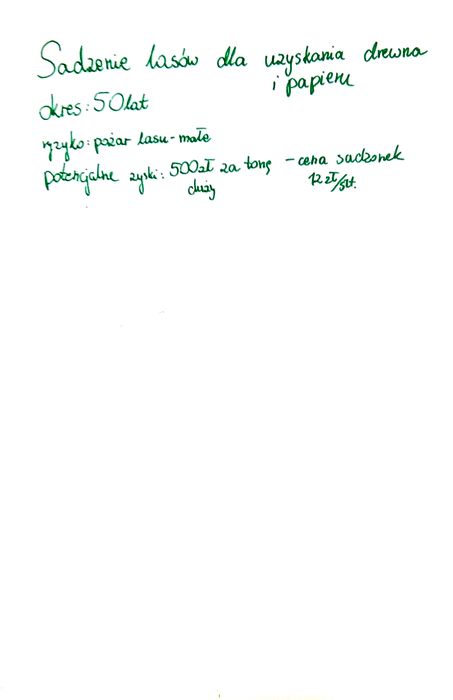 Sadzenie lasów dla uzyskania drewna
i papieru
okres: 50 lat
ryzyko: pożar lasu - małe
potencjalne zyski: 500zł za tonę - cena sadzonek
duży 12 zł/szt.